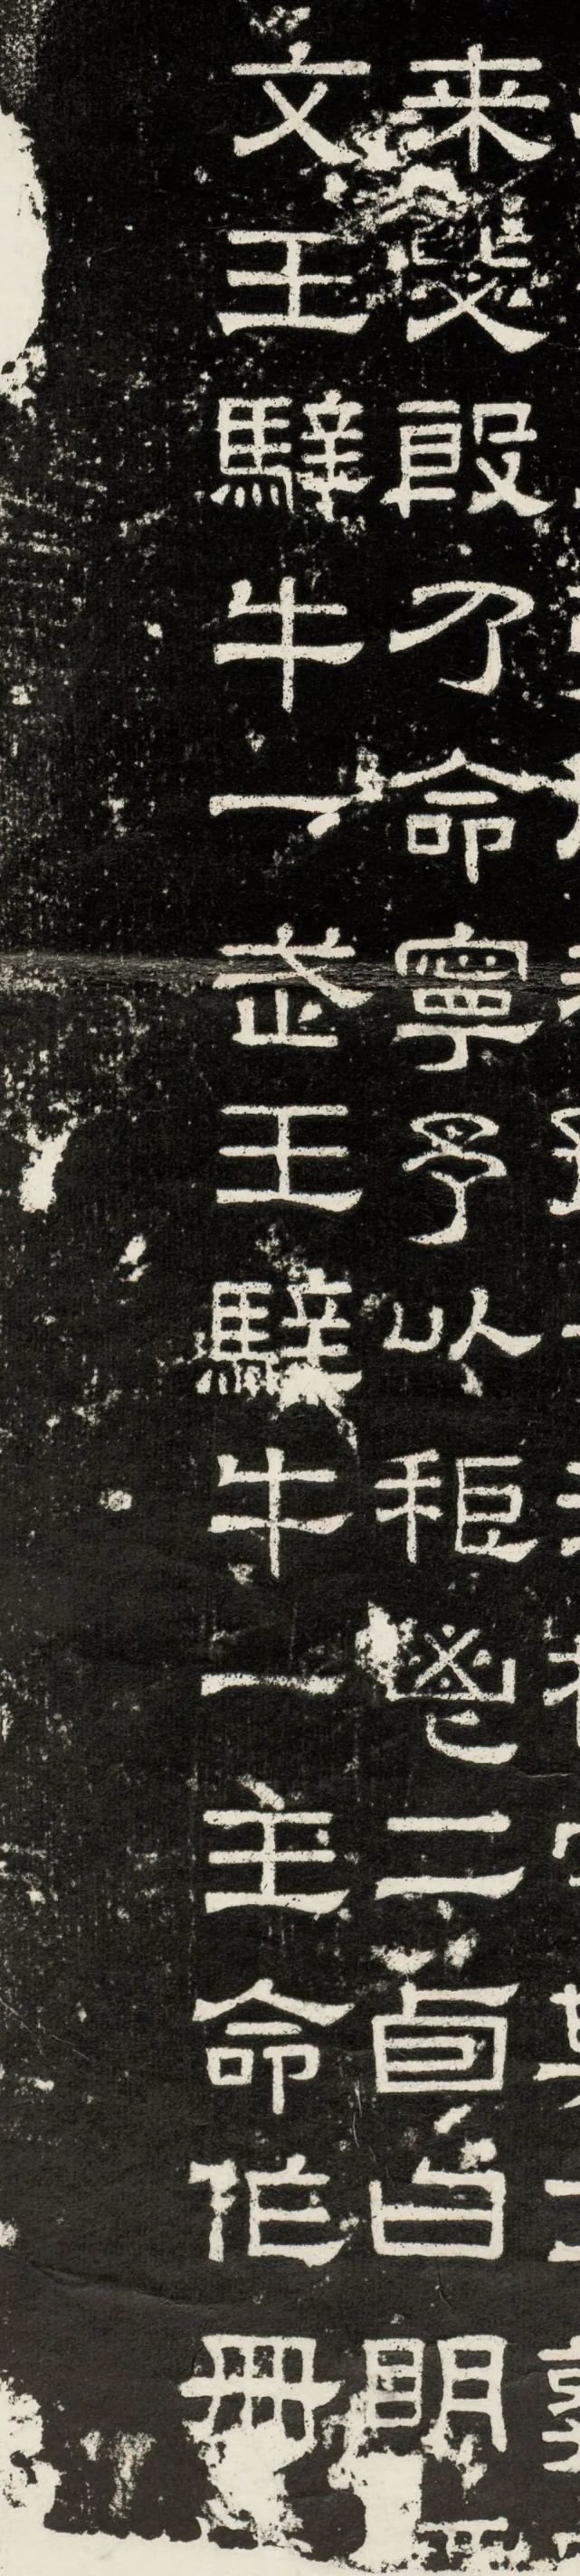 来毖殷乃命寧予以秬鬯二卣曰明
文王騂牛一武王騂牛一王命作冊